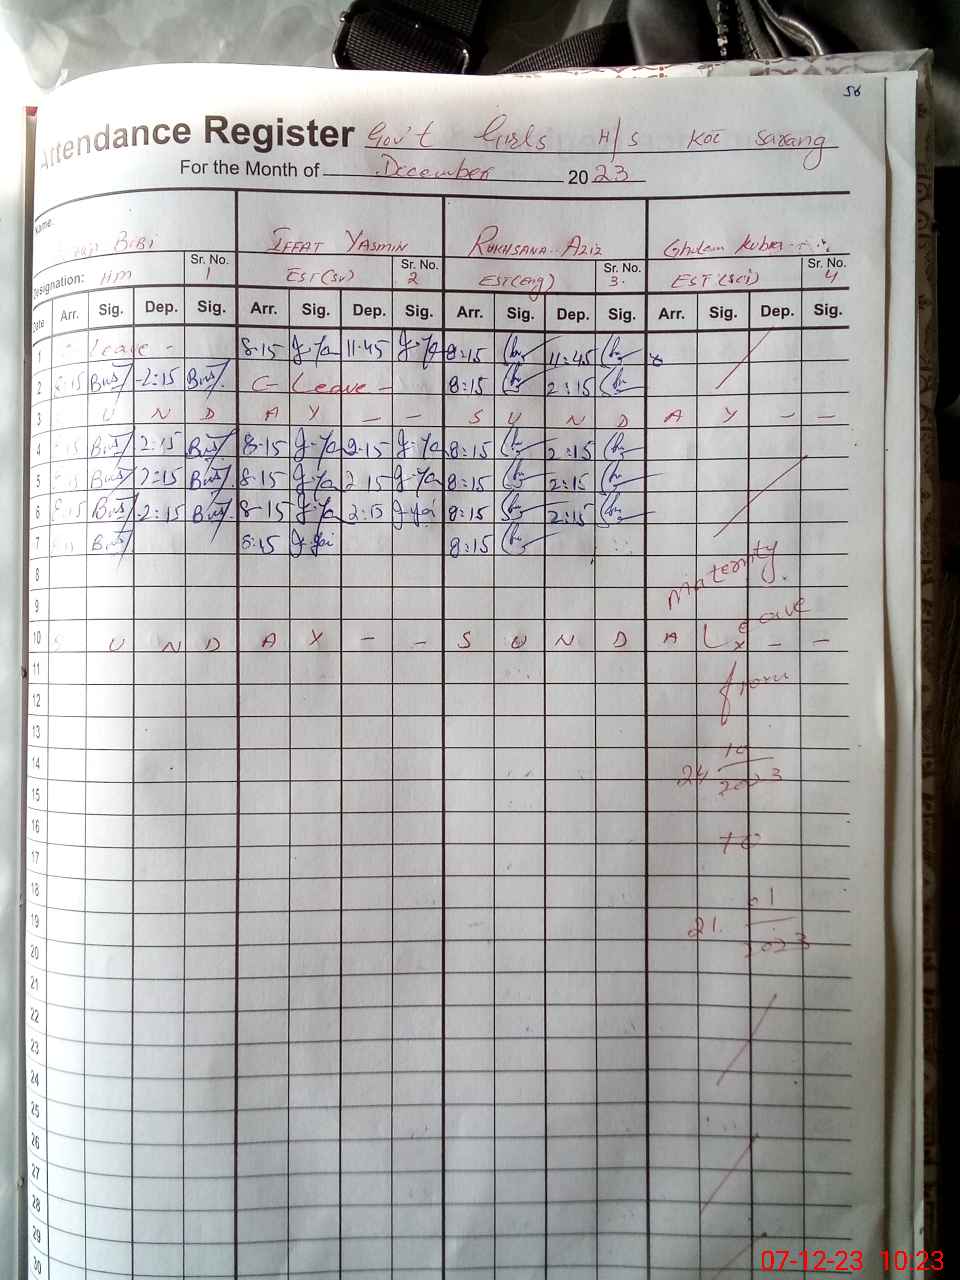 56
Attendance Register Gov't Girls H/S Kot Sarang
For the Month of December 2023
Name:
BIBI IFFAT YASMIN RUKHSANA AZIZ Ghulam Kubra
Designation: HM Sr. No. 1 EST(SV) Sr. No. 2 EST(Eng) Sr. No. 3. EST(Sci) Sr. No. 4
Date Arr. Sig. Dep. Sig. Arr. Sig. Dep. Sig. Arr. Sig. Dep. Sig. Arr. Sig. Dep. Sig.
1 Leave - 8-15 11-45 8:15 11:45
2 8:15 2:15 C- Leave - 8:15 2:15
3 S U N D A Y - - S U N D A Y - -
4 8:15 2:15 8-15 2-15 8:15 2:15
5 8:15 2:15 8-15 2-15 8:15 2:15
6 8:15 2:15 8-15 2:15 8:15 2:15
7 8:15 8:15 8:15
8 Maternity
9 Leave
10 S U N D A Y - - S U N D A Y - -
11 from
12
13
14 24 10/2023
15
16
17 to
18
19 21. 01/2023
20
21
22
23
24
25
26
27
28
29
30
07-12-23 10:23